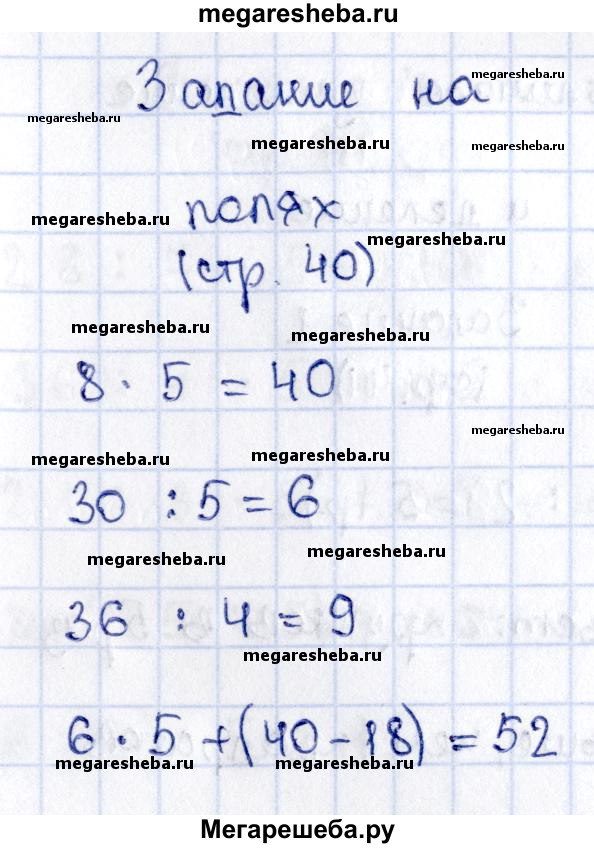 megaresheba.ru
Задание на
megaresheba.ru
megaresheba.ru
megaresheba.ru
megaresheba.ru
полях
megaresheba.ru
megaresheba.ru
(стр. 40)
megaresheba.ru
megaresheba.ru
8 · 5 = 40
megaresheba.ru
megaresheba.ru
megaresheba.ru
30 : 5 = 6
megaresheba.ru
megaresheba.ru
36 : 4 = 9
megaresheba.ru
6 · 5 + (40 - 18) = 52
megaresheba.ru
megaresheba.ru
Мегарешеба.ру